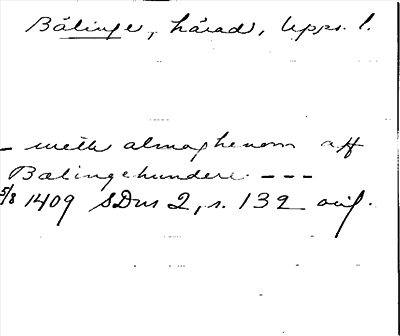 Bälinge, härad, Upps. l.
– meth almoghenom aff
Balingehundere - - -
5/8 1409 SDns 2, s. 132 avf.